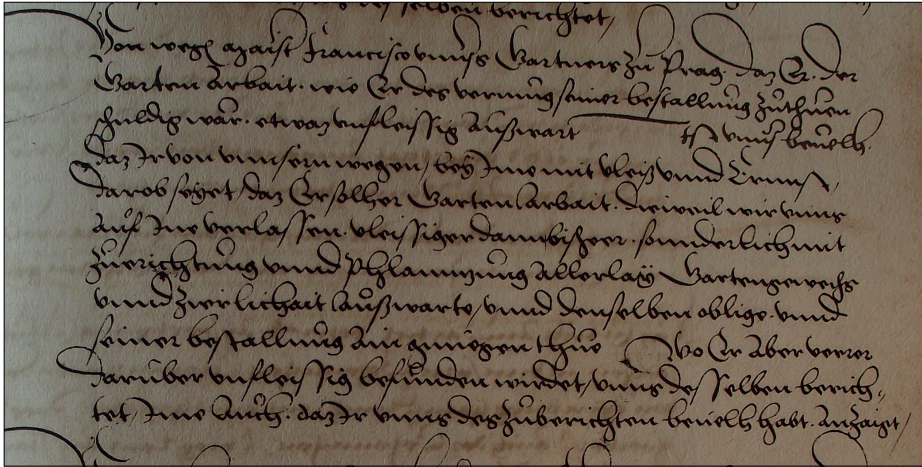 desselben berichtet,
Von wegen Francisco unnsers Gartners zu Prag, daz Er der
Garten Arbait, wie Er des vermüg seiner bestallung zuthuen
schuldig wär, etwaz unfleissig Außwart Ist unnser bevelh,
daz Ir von unnsern wegen, bey Ime mit vleiß unnd Ernnst,
darob seyet, daz Er solher Garten Arbait, dieweil wir unns
Auf Ine verlassen, vleissiger dann bißheer, sonderlich mit
Zuerichtung unnd Phlanntzung Allerlay Gartengewechs
unnd Zierlichait Außwarte, unnd denselben oblige, unnd
seiner bestallung Ain genuegen thue Wo Er Aber verrer
darüber unfleissig befunden wirdet, unns desselben berich-
tet, Ime Auch, daz Ir unns des Zuberichten bevelh habt, Anzaigt,